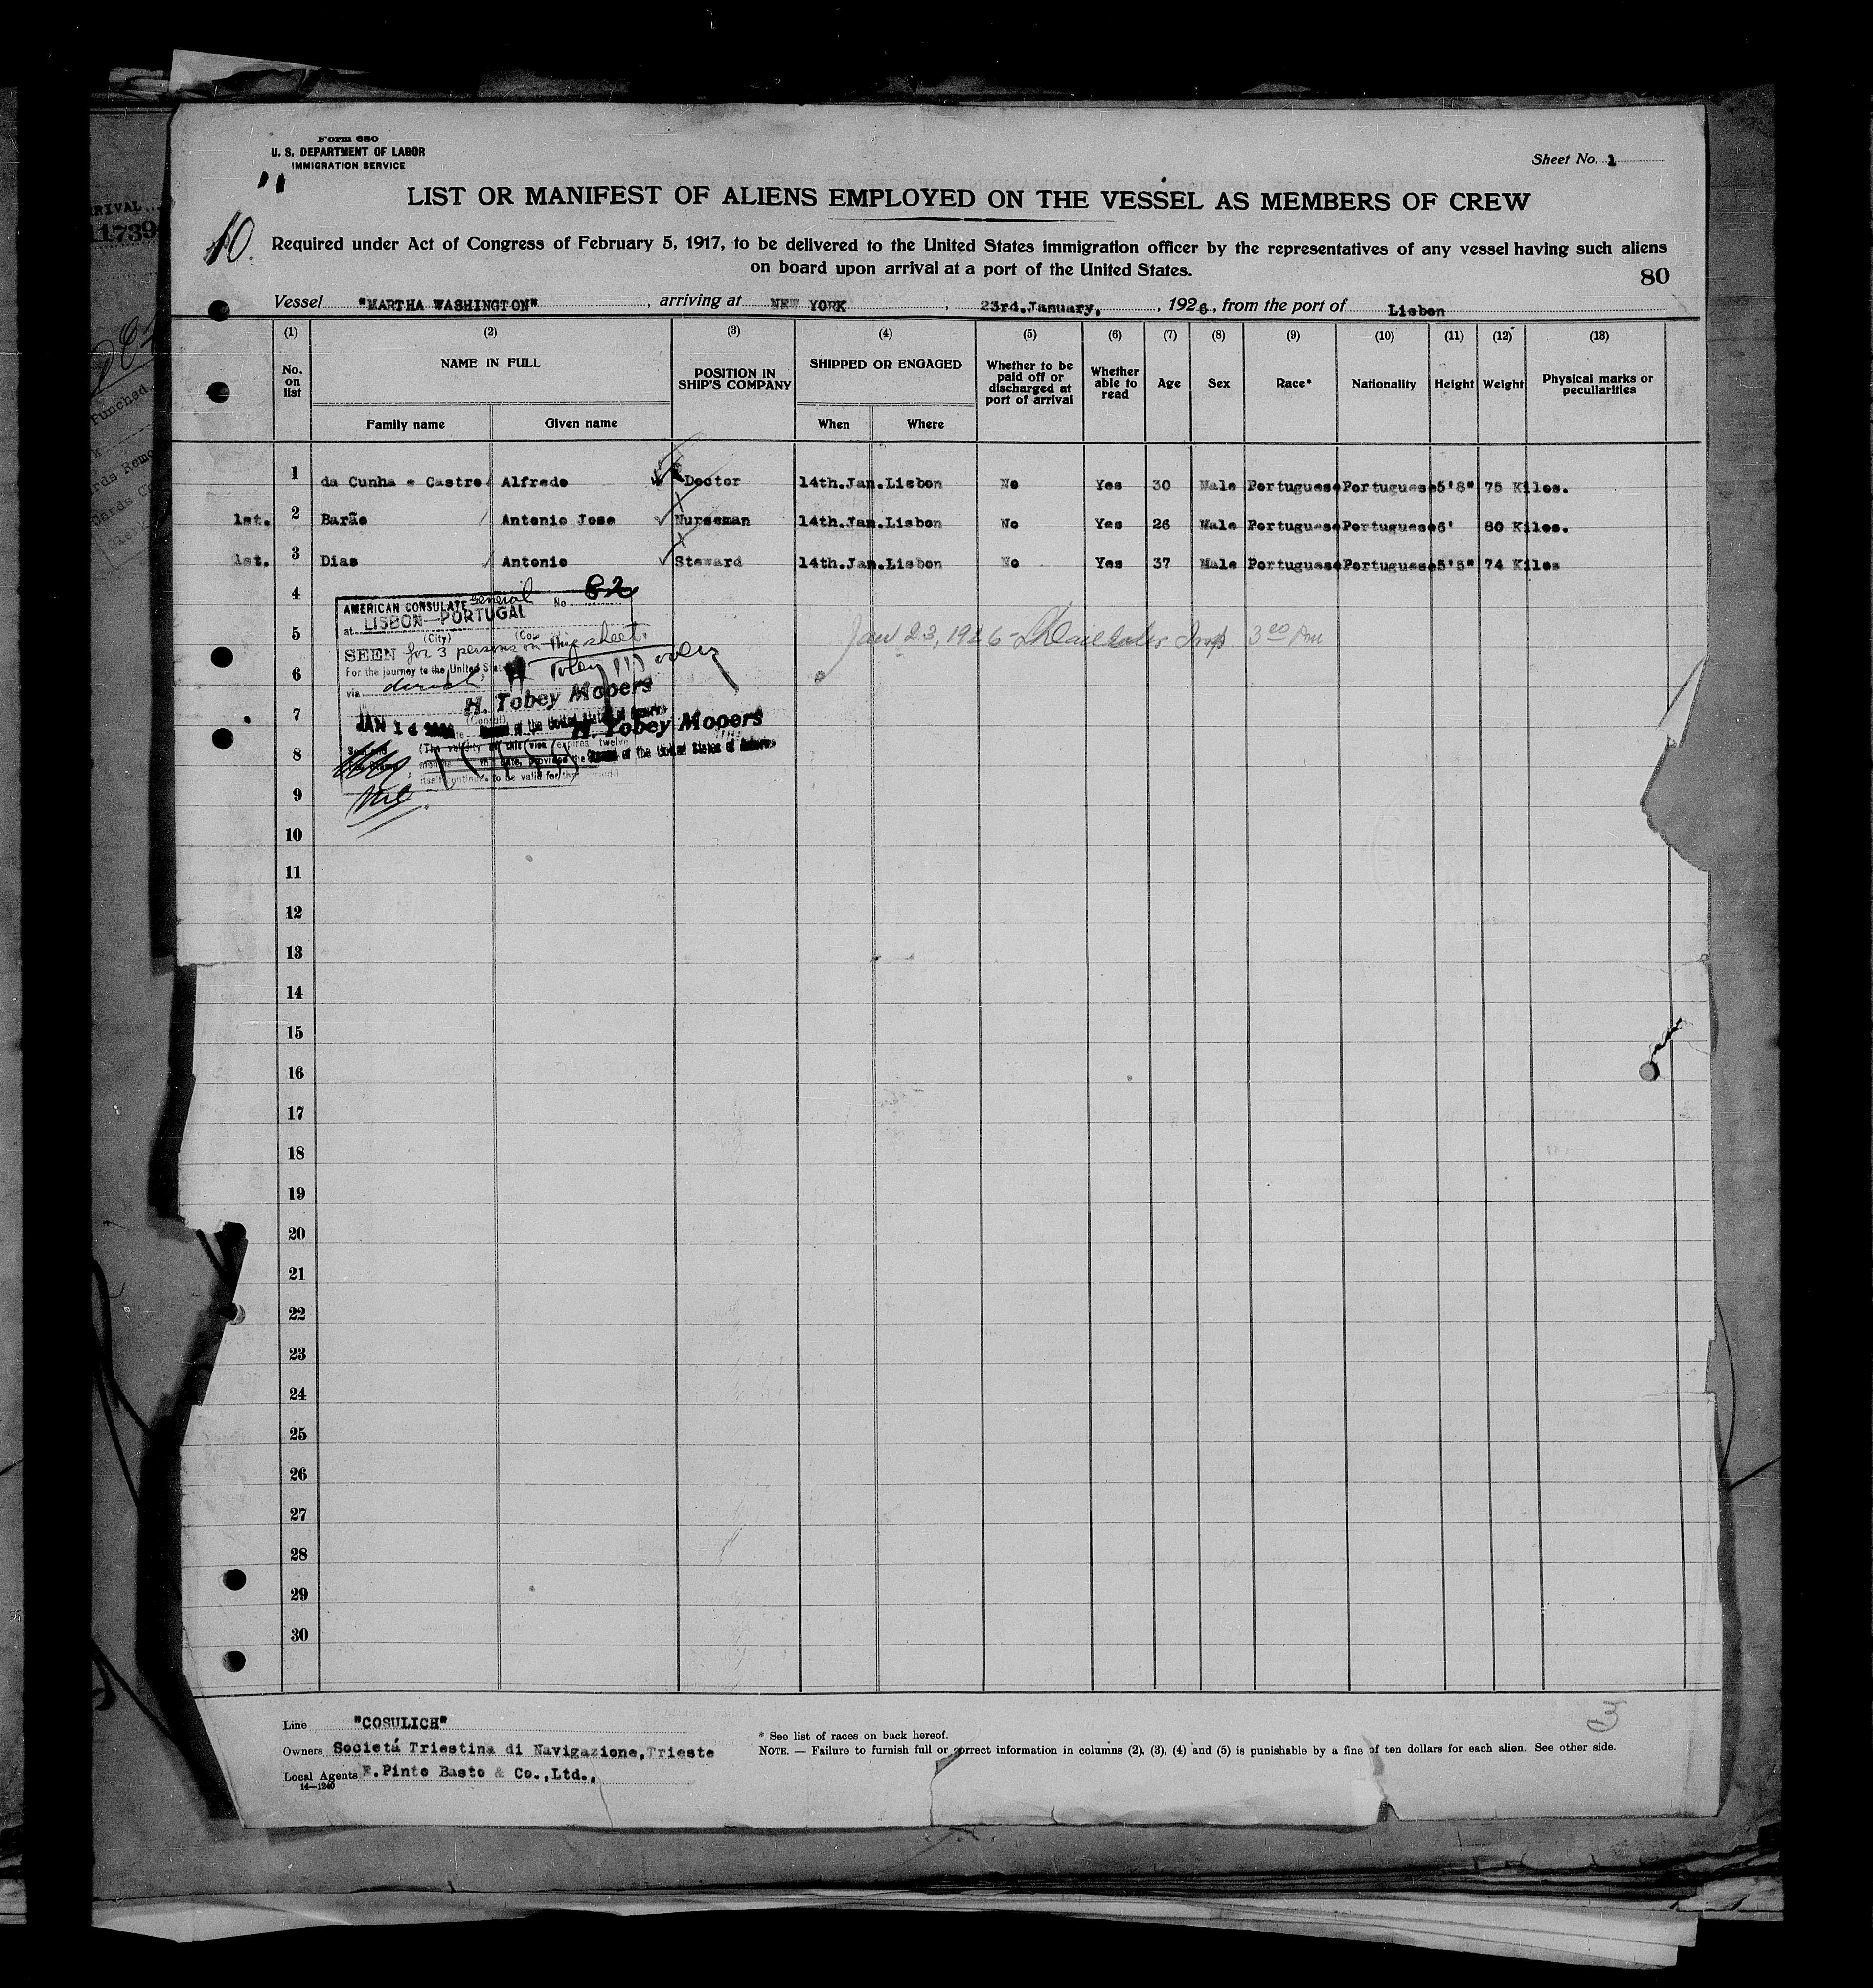 Form 680
U. S. DEPARTMENT OF LABOR
IMMIGRATION SERVICE
Sheet No. 1
LIST OR MANIFEST OF ALIENS EMPLOYED ON THE VESSEL AS MEMBERS OF CREW
10.
Required under Act of Congress of February 5, 1917, to be delivered to the United States immigration officer by the representatives of any vessel having such aliens
on board upon arrival at a port of the United States.
80
Vessel "MARTHA WASHINGTON", arriving at NEW YORK, 23rd.January, 1926, from the port of Lisbon
(1) (2) (3) (4) (5) (6) (7) (8) (9) (10) (11) (12) (13)
No. on list NAME IN FULL Family name Given name POSITION IN SHIP'S COMPANY SHIPPED OR ENGAGED When Where Whether to be paid off or discharged at port of arrival Whether able to read Age Sex Race* Nationality Height Weight Physical marks or peculiarities
1 da Cunha e Castro Alfredo Doctor 14th.Jan. Lisbon No Yes 30 Male Portuguese Portuguese 5'8" 75 Kilos.
1st. 2 Barão Antonio Jose Nurseman 14th.Jan. Lisbon No Yes 26 Male Portuguese Portuguese 6' 80 Kilos.
1st. 3 Dias Antonio Steward 14th.Jan. Lisbon No Yes 37 Male Portuguese Portuguese 5'5" 74 Kilos
4
AMERICAN CONSULATE General No. 82
at LISBON-PORTUGAL
(City)
5
Jan 23, 1926 Insp. 3 00 Pm
SEEN for 3 persons on this sheet.
For the journey to the United States
6
via direct
H. Tobey Mooers
7
JAN 14
(Consul)
of the United States of America
H. Tobey Mooers
8
(The validity of this visa expires twelve
of the United States of America
months date, provided the
itself continues to be valid for that period.)
9
10
11
12
13
14
15
16
17
18
19
20
21
22
23
24
25
26
27
28
29
30
Line "COSULICH"
Owners Societá Triestina di Navigazione,Trieste
Local Agents E.Pinto Basto & Co.,Ltd.,
14—1240
* See list of races on back hereof.
NOTE. — Failure to furnish full or correct information in columns (2), (3), (4) and (5) is punishable by a fine of ten dollars for each alien. See other side.
RIVAL
11739
Punched